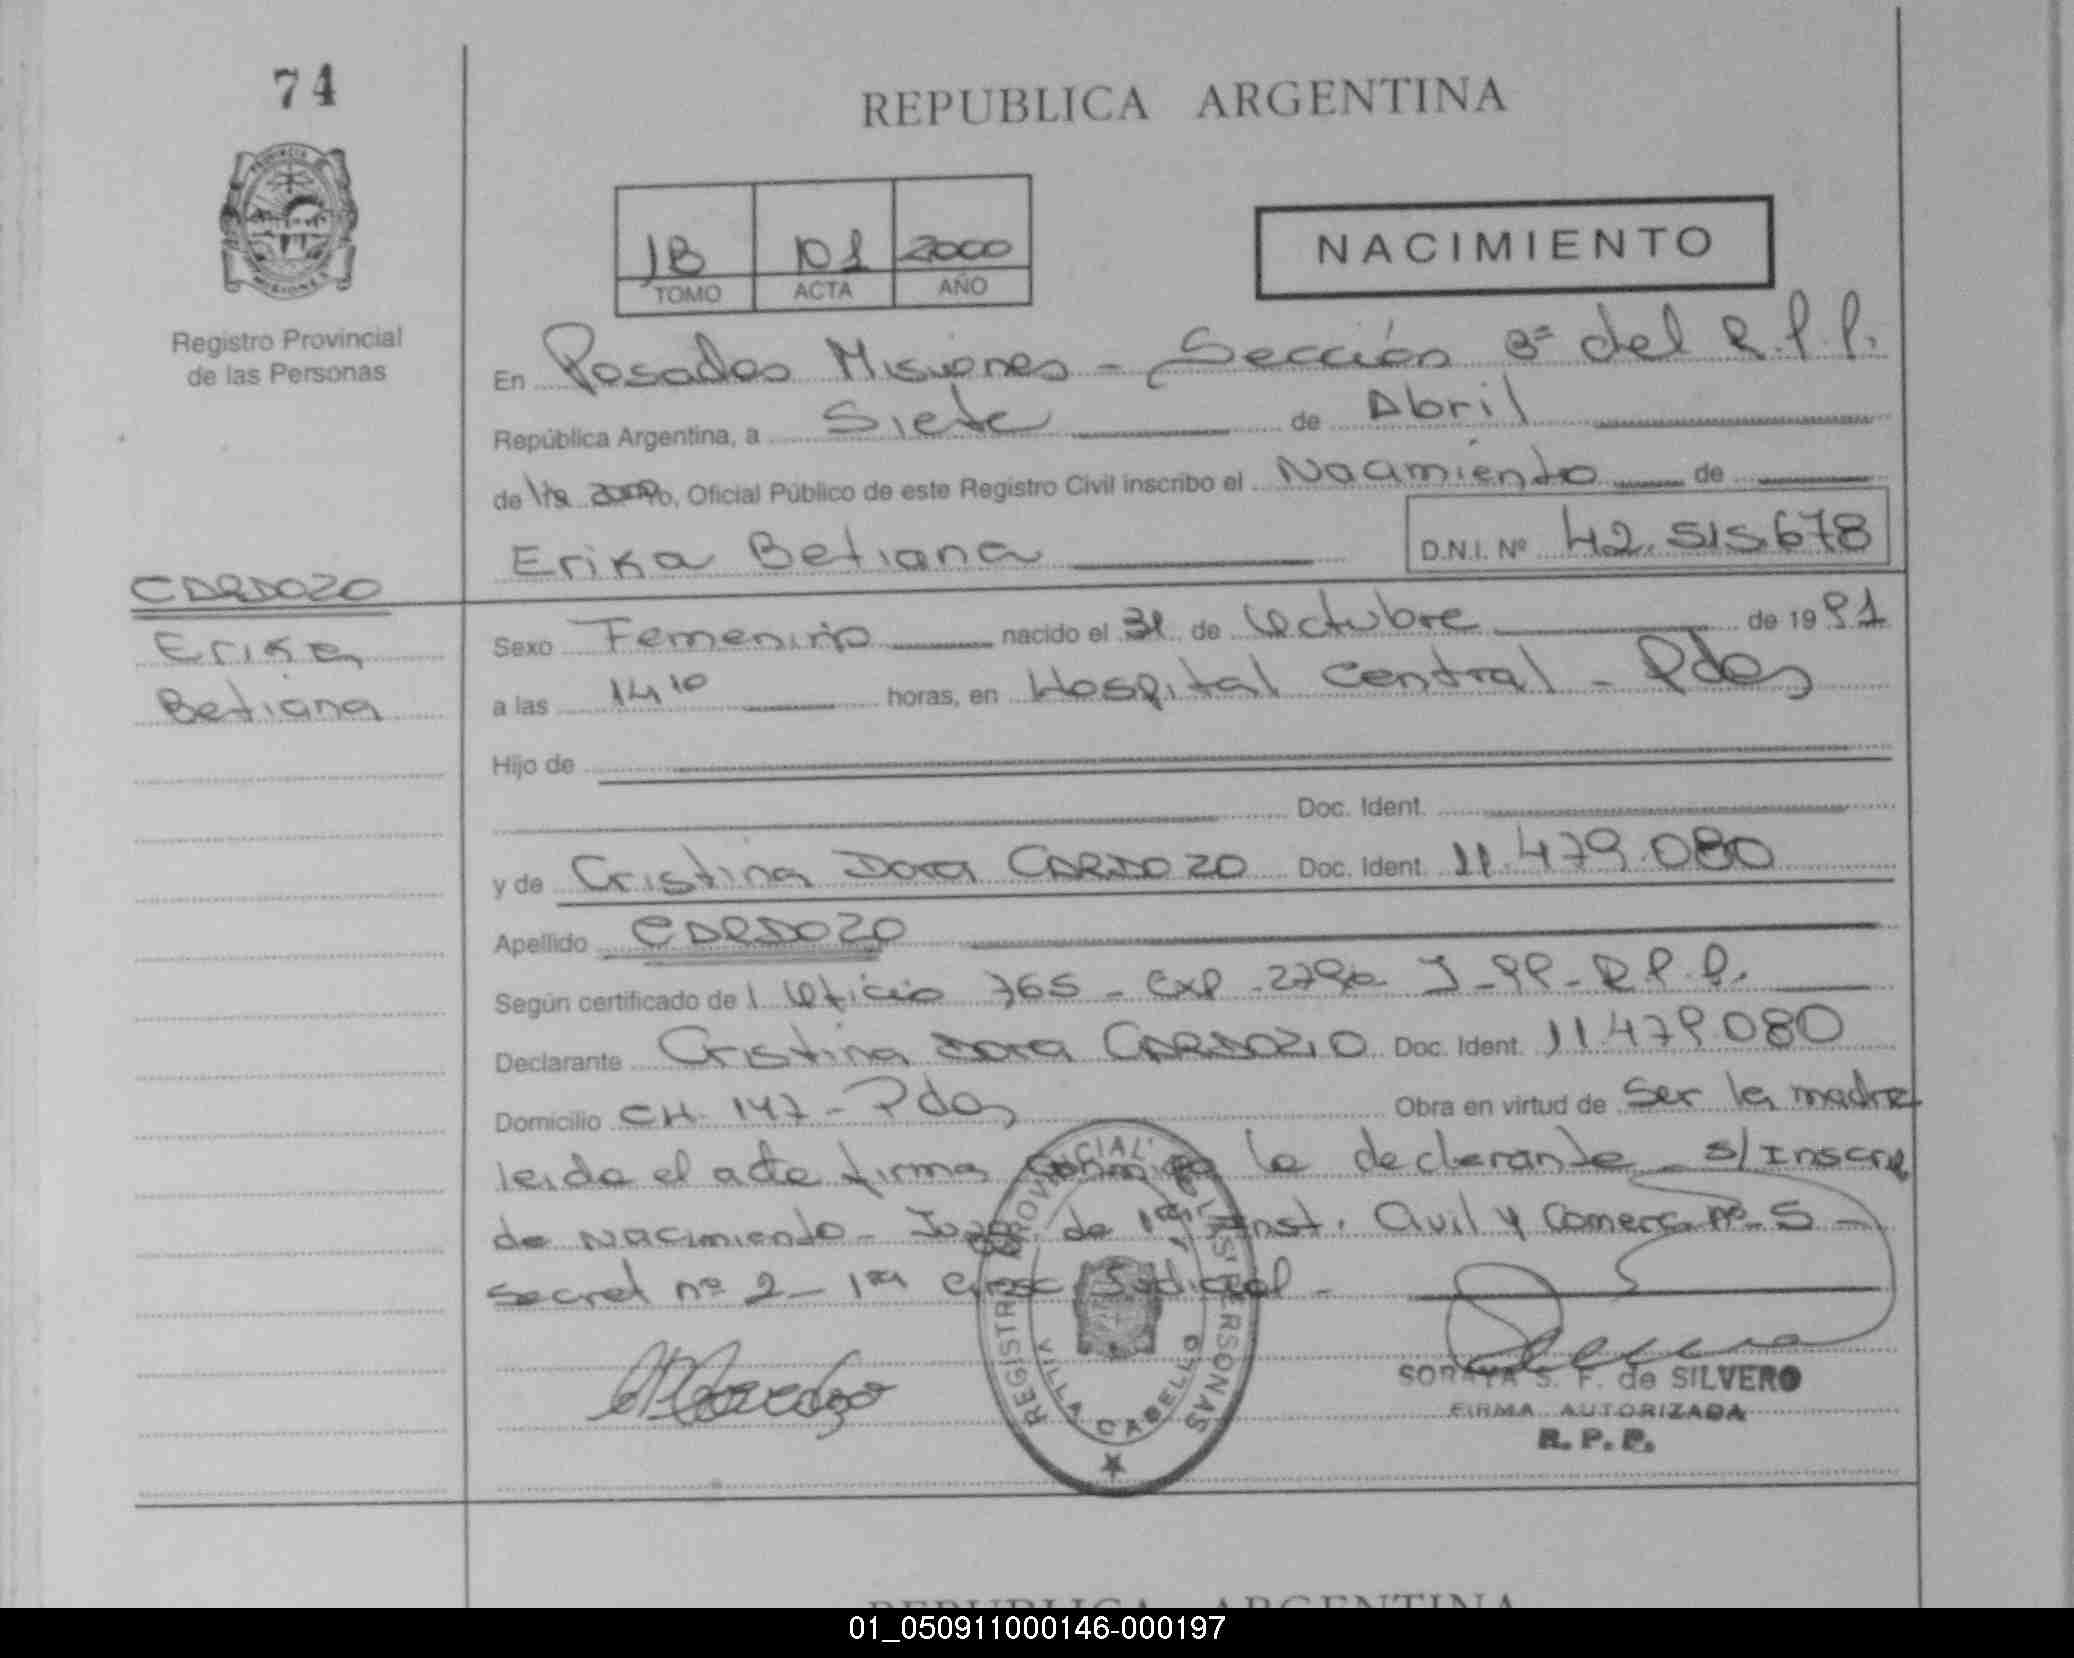 74
REPUBLICA ARGENTINA
PROVINCIA
MISIONES
Registro Provincial
de las Personas
1B 101 2000
TOMO ACTA AÑO
NACIMIENTO
En Posadas Misiones - Sección 3ª del R.P.P.
República Argentina, a Siete de Abril
de 2000, Oficial Público de este Registro Civil inscribo el Nacimiento de
Erika Betiana D.N.I. Nº 42.515.678
CARDOZO
Erika
Betiana
Sexo Femenino nacido el 31 de Octubre de 19 91
a las 14 10 horas, en Hospital Central - Pdas
Hijo de
Doc. Ident.
y de Cristina Dora CARDOZO Doc. Ident. 11.479.080
Apellido CARDOZO
Según certificado de Oficio 765 - Exp - J - PP - R.P.P.
Declarante Cristina Dora CARDOZO Doc. Ident. 11.479.080
Domicilio CH. 147 - Pdas Obra en virtud de Ser la madre
leida el acta firma conmigo la declarante - s/Inscrip
de Nacimiento - Juzg. de 1ra Inst. Civil y Comerc. nº 5 -
Secret nº 2 - 1ra Circ Judicial -
REGISTRO PROVINCIAL DE LAS PERSONAS
VILLA CABELLO
SORAYA S. F. de SILVERO
FIRMA AUTORIZADA
R. P. P.
REPUBLICA ARGENTINA
01_050911000146-000197